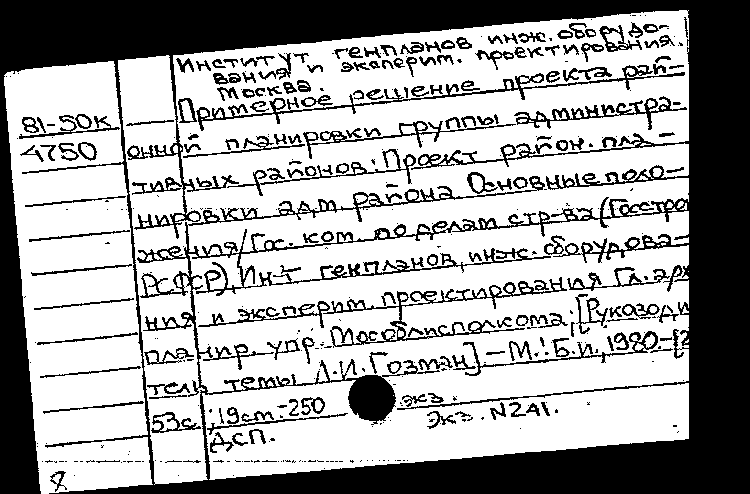 Институт генпланов инж. оборудо-
вания и эксперим. проектирования.
Москва.
81-50к
4750
Примерное решение проекта рай-
онной планировки группы администра-
тивных районов: Проект район. пла-
нировки адм. района. Основные поло-
жения/Гос. ком. по делам стр-ва (Госстрой
РСФСР), Ин-т генпланов, инж. оборудова-
ния и эксперим. проектирования Гл. арх
планир. упр. Мособлисполкома; [Руководи
тель темы Л.И. Гозман]. - М.: Б.и., 1980 - [2
53с.; 19см - 250 экз.
ДСП. Экз. N241.
8